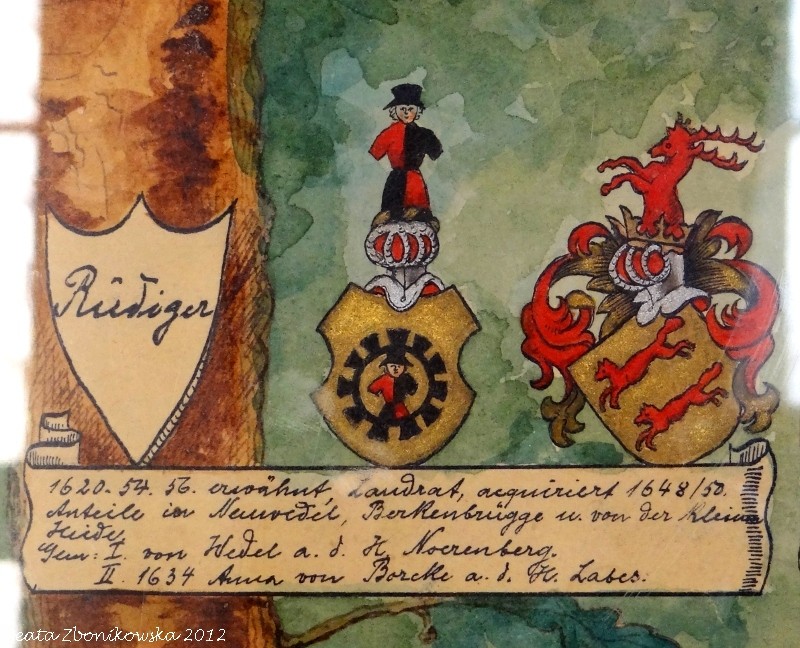 Rüdiger
1620. 54. 56. erwähnt, Landrat, acquiriert 1648/50.
Anteile in Neuwedel, Berkenbrügge u. von der Kleinen
Heide.
Gem: I. von Wedel a. d. H. Noerenberg.
II. 1634 Anna von Borcke a. d. H. Labes.
eata Zbonikowska 2012